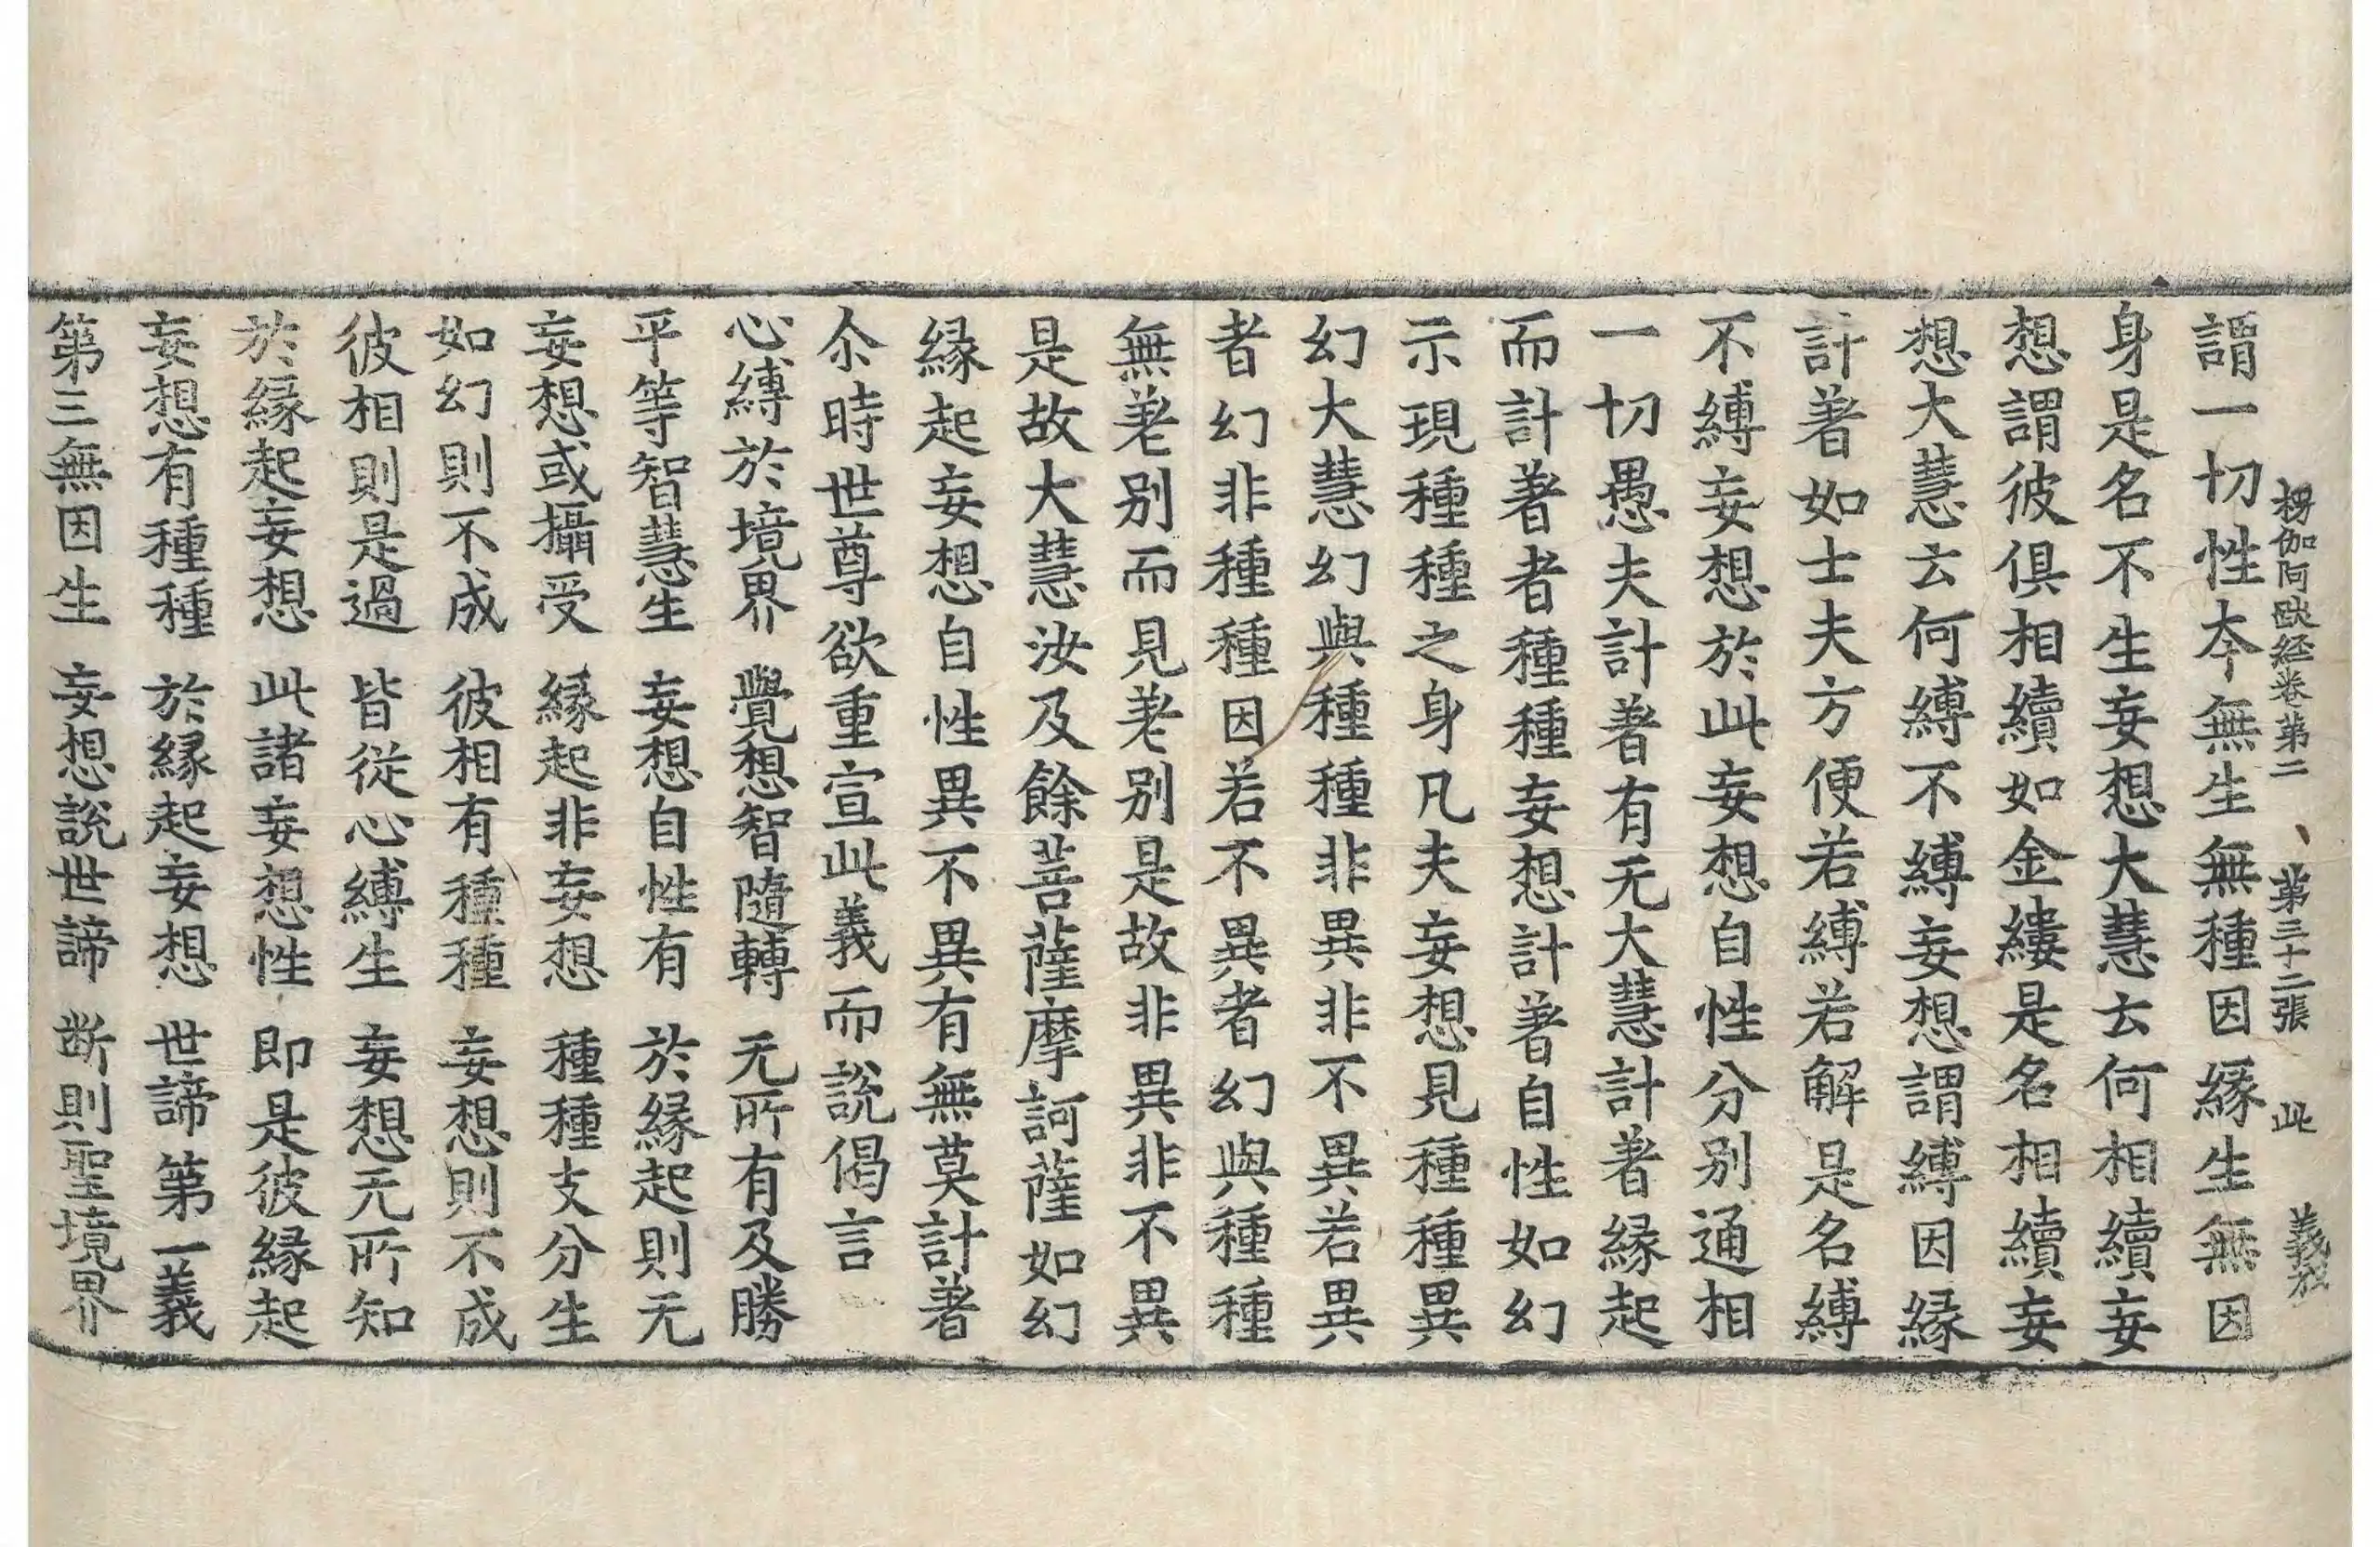 楞伽阿跋経卷第二 第三十二張 此 義
謂一切性夲無生無種因緣生無因
身是名不生妄想大慧云何相續妄
想謂彼俱相續如金縷是名相續妄
想大慧云何縛不縛妄想謂縛因緣
計著如士夫方便若縛若解是名縛
不縛妄想於此妄想自性分別通相
一切愚夫計著有无大慧計著緣起
而計著者種種妄想計著自性如幻
示現種種之身凡夫妄想見種種異
幻大慧幻與種種非異非不異若異
者幻非種種因若不異者幻與種種
無差別而見差別是故非異非不異
是故大慧汝及餘菩薩摩訶薩如幻
緣起妄想自性異不異有無莫計著
尒時世尊欲重宣此義而說偈言
心縛於境界 覺想智隨轉 无所有及勝
平等智慧生 妄想自性有 於緣起則无
妄想或攝受 緣起非妄想 種種支分生
如幻則不成 彼相有種種 妄想則不成
彼相則是過 皆從心縛生 妄想无所知
於緣起妄想 此諸妄想性 即是彼緣起
妄想有種種 於緣起妄想 世諦第一義
第三無因生 妄想說世諦 断則聖境界